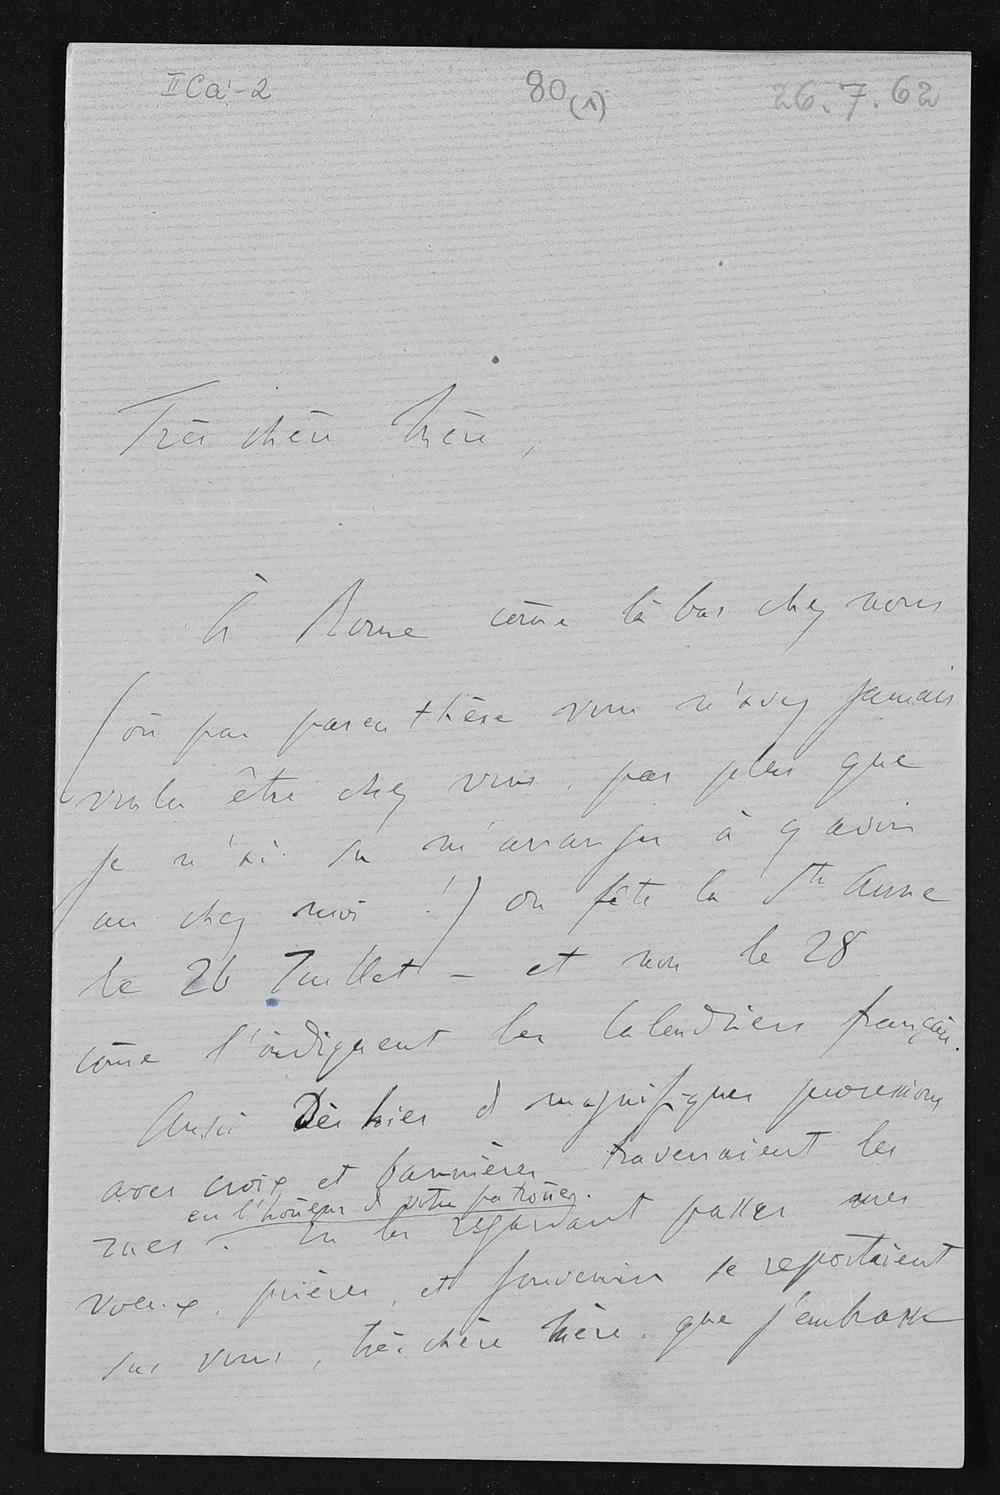 II Ca'-2 80 (1) 26.7.62
Très chère Mère,
À Rome come là bas chez nous
(où par parenthèse vous n'avez jamais
voulu être chez vous, pas plus que
je n'ai su m'arranger à y avoir
un chez moi !) on fête la Ste Anne
le 26 Juillet – et non le 28
come l'indiquent les Calendriers français.
Aussi Dès hier d magnifiques processions
avec croix et bannières traversaient les
en l'honeur d votre patrone.
rues. En les regardant passer mes
voeux, prières, et souvenirs se reportaient
sur vous, très chère Mère, que j'embrasse